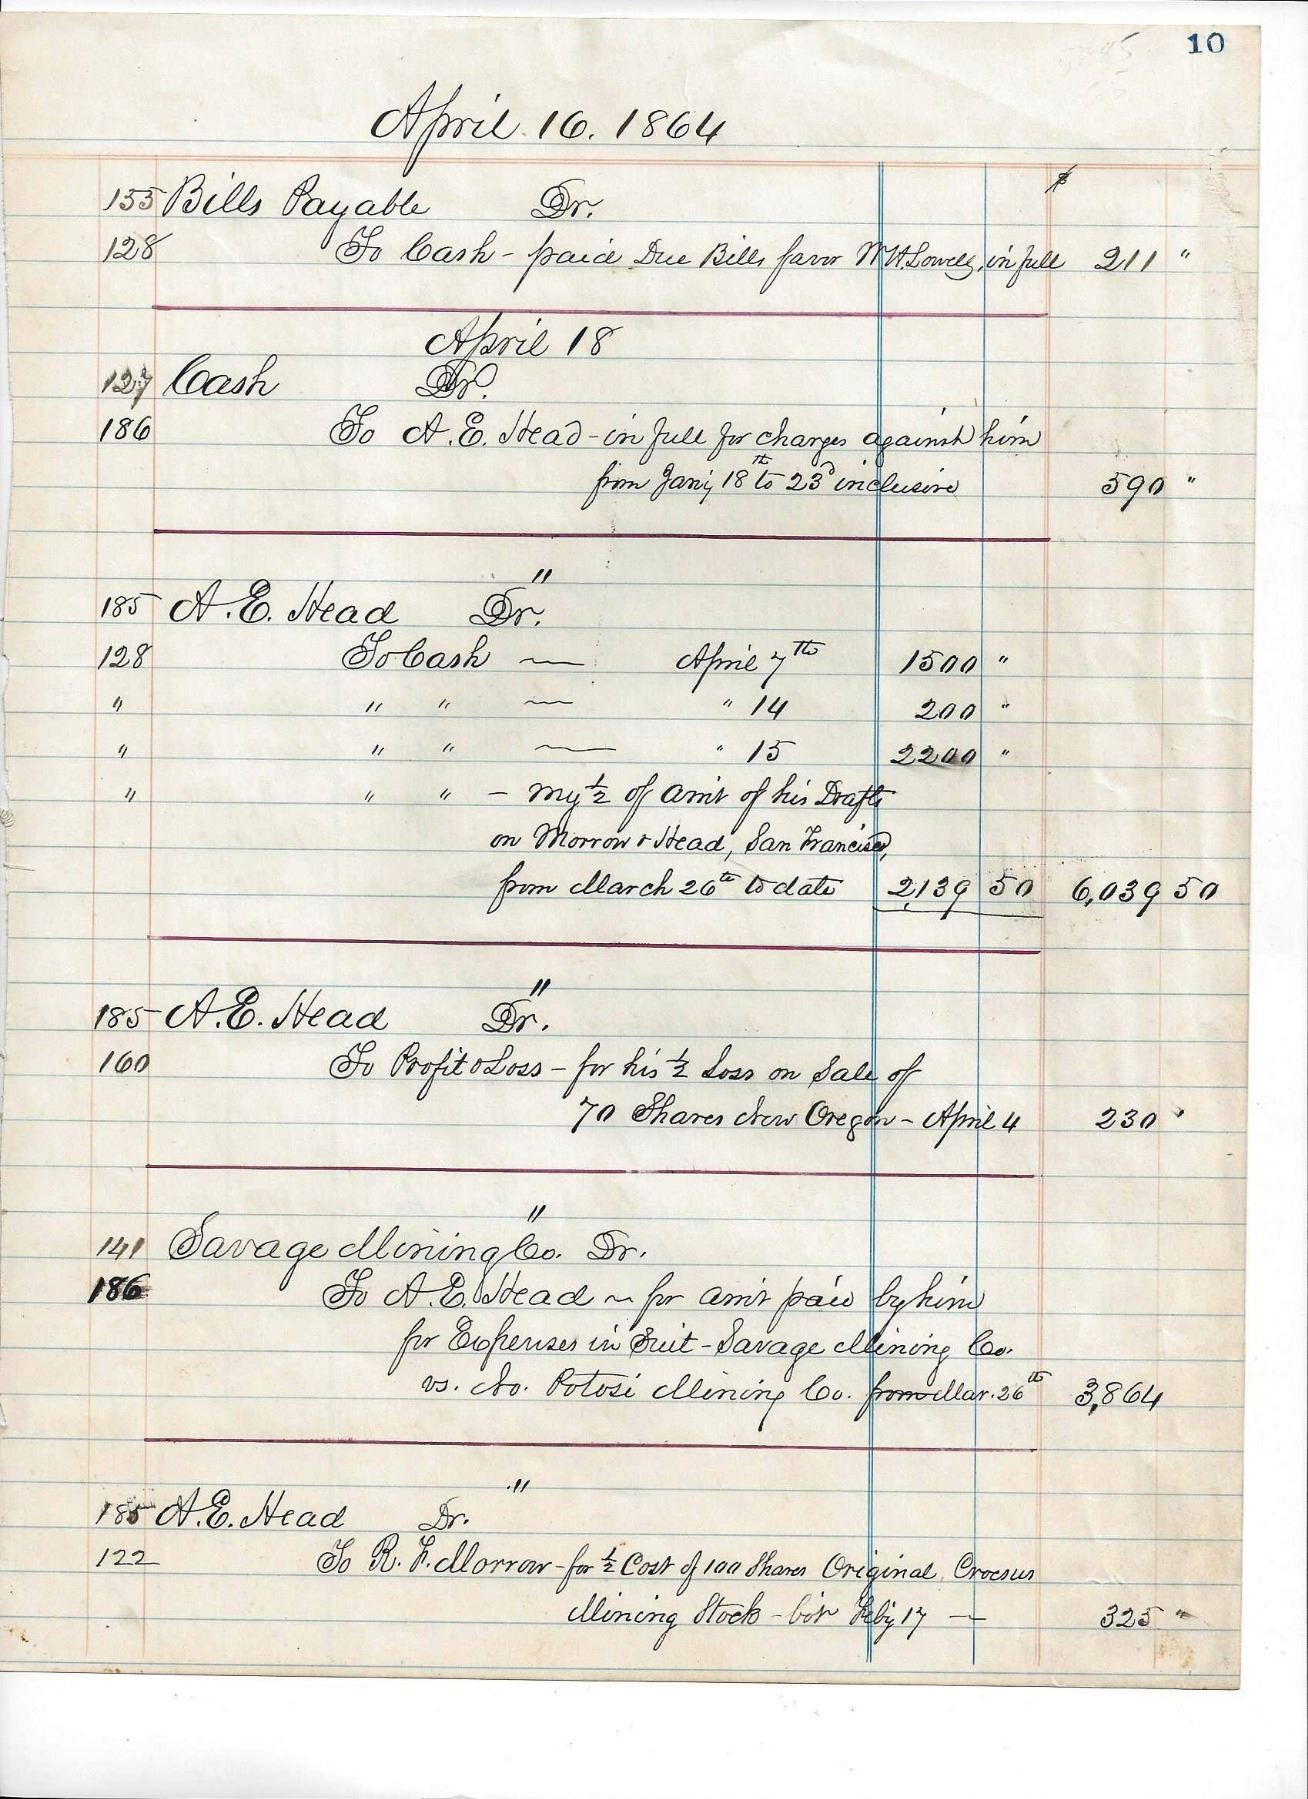 10
April 16. 1864
$
155 Bills Payable Dr.
128 To Cash - paid Due Bills favor W H Lowell, in full 211 "
April 18
127 Cash Dr.
186 To A. E. Head - in full for charges against him
from Jany 18th to 23d inclusive 590 "
"
185 A. E. Head Dr.
128 To Cash — April 7th 1500 "
" " " — " 14 200 "
" " " — " 15 2200 "
" " " - my ½ of amt of his Drafts
on Morrow & Head, San Francisco,
from March 26th to date 2,139 50 6,039 50
"
185 A. E. Head Dr.
160 To Profit & Loss - for his ½ Loss on Sale of
70 Shares New Oregon - April 4 230 "
"
141 Savage Mining Co. Dr.
186 To A. E. Head ~ for amt paid by him
for Expenses in Suit - Savage Mining Co.
vs. No. Potosi Mining Co. from Mar. 26th 3,864
"
185 A. E. Head Dr.
122 To R. F. Morrow - for ½ Cost of 100 Shares Original Croesus
Mining Stock - bot Feby 17 — 325 "